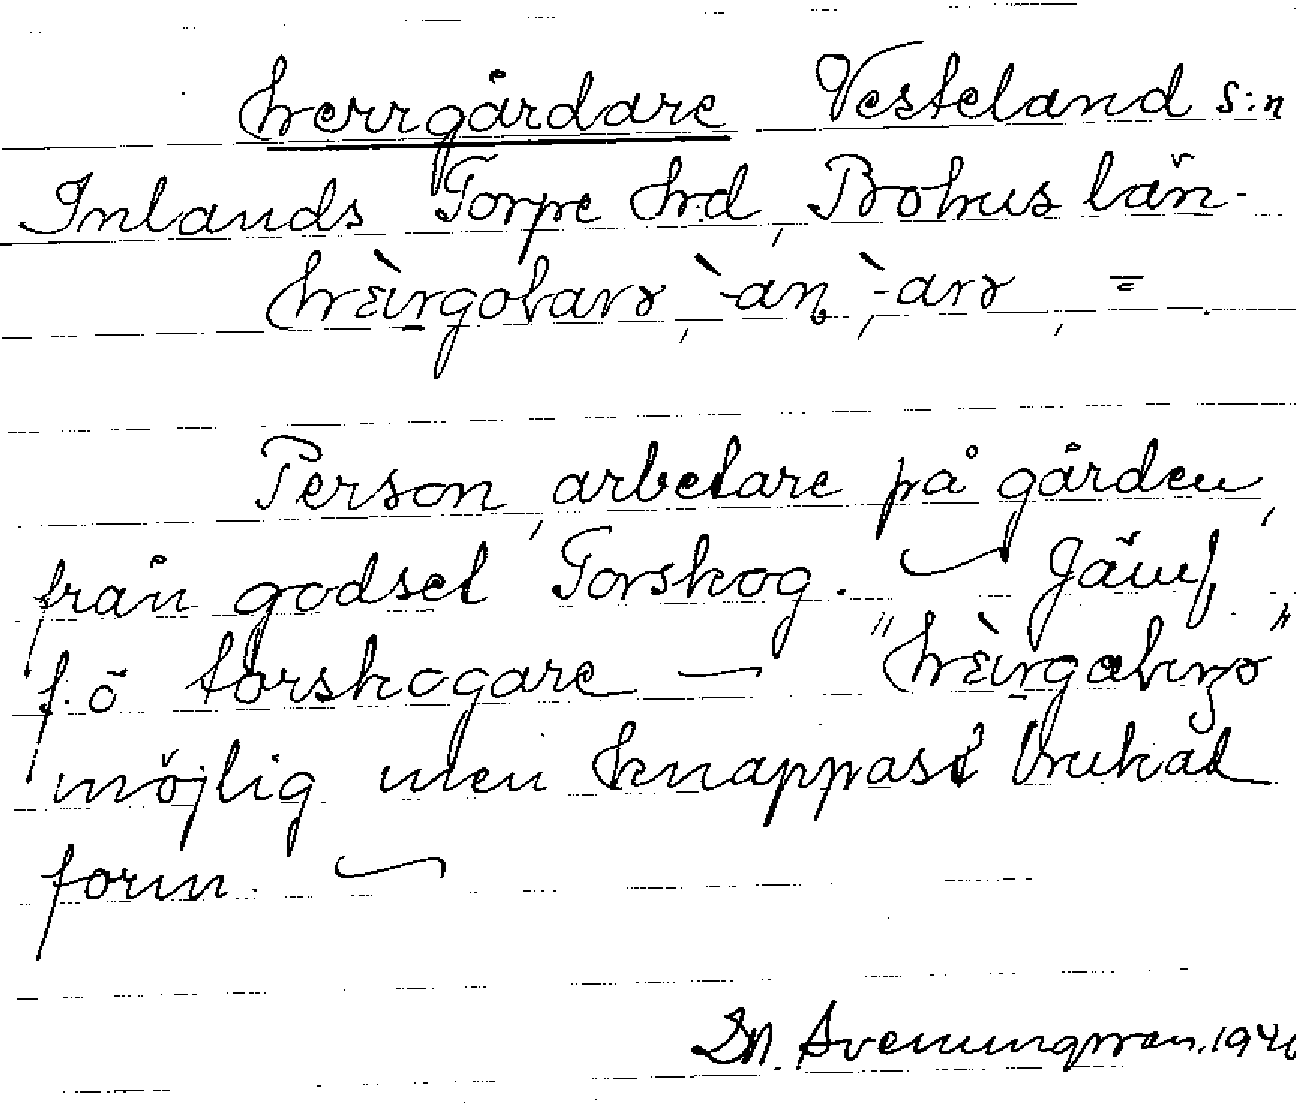 herrgårdare Vesteland s:n
Inlands Torpe hrd, Bohus län.
-an, -arɤ, =
Person, arbetare på gården,
från godset Torskog. ~ Jämf.
f. ö torskogare —
möjlig men knappast brukad
form. ~
Avenningsson. 194